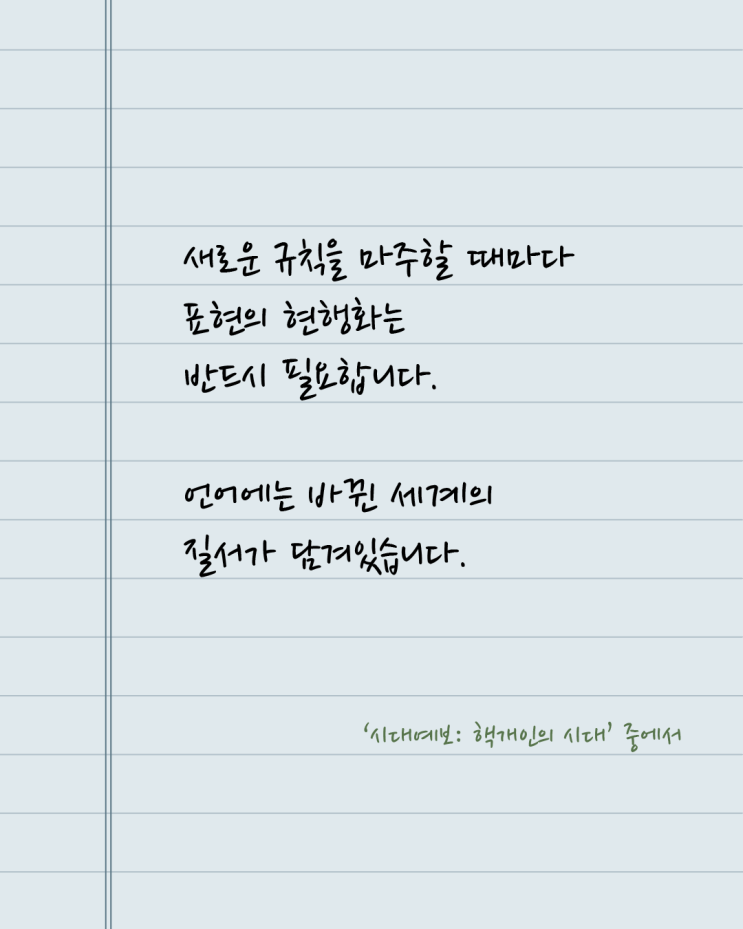 새로운 규칙을 마주할 때마다
표현의 현행화는
반드시 필요합니다.
언어에는 바뀐 세계의
질서가 담겨있습니다.
‘시대예보: 핵개인의 시대’ 중에서